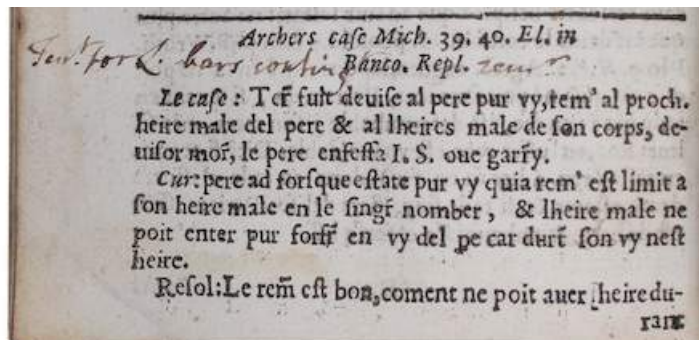 Archers case Mich. 39. 40. El. in
Ten.t for L. bars conting.t Banco. Repl. rem.r
Le case : Ter̃ fuit deuise al pere pur vy, rem' al proch.
heire male del pere & al lheires male de son corps, de-
uisor mor̃, le pere enfeffa I. S. oue garr̃y.
Cur: pere ad forsque estate pur vy quia rem' est limit a
son heire male en le singr̃ nomber, & lheire male ne
poit enter pur forff̃ en vy del pe car durt̃ son vy nest
heire.
Resol: Le rem̃ est bon, coment ne poit auer heire du-
rant